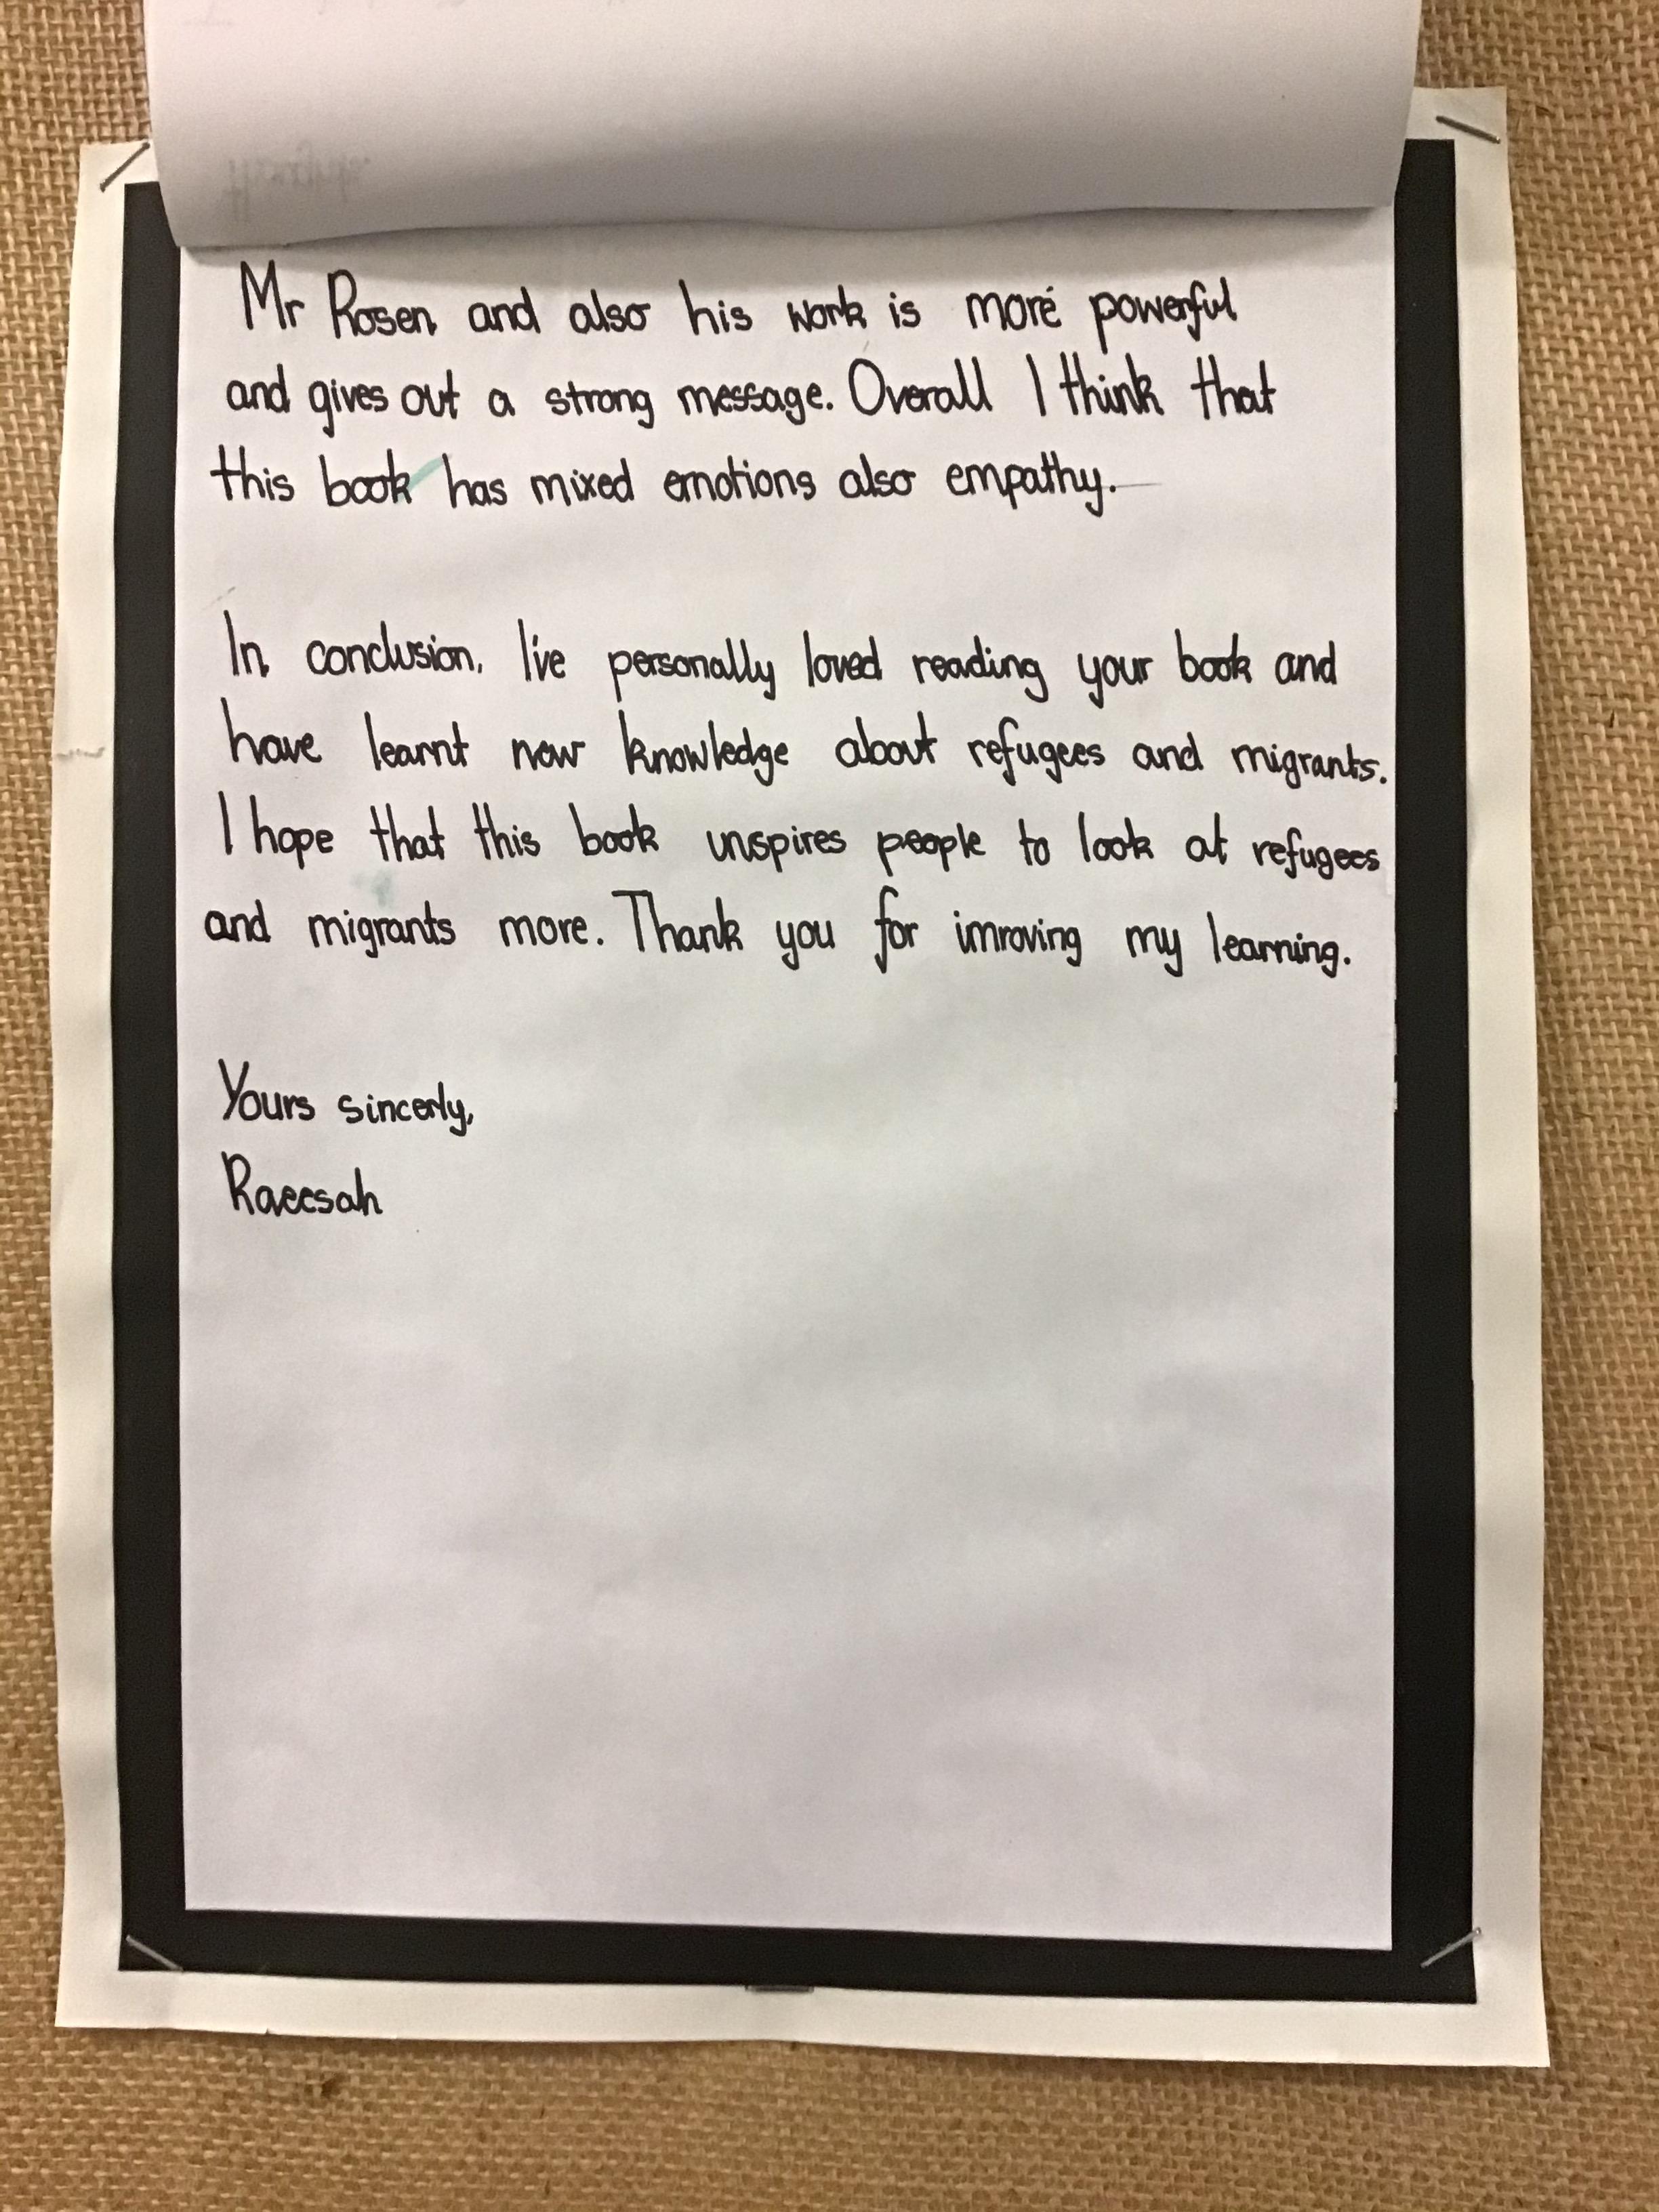 Mr Rosen and also his work is more powerful
and gives out a strong message. Overall I think that
this book has mixed emotions also empathy.
In conclusion, I've personally loved reading your book and
have learnt new knowledge about refugees and migrants.
I hope that this book unspires people to look at refugees
and migrants more. Thank you for imroving my learning.
Yours sincerly,
Raeesah